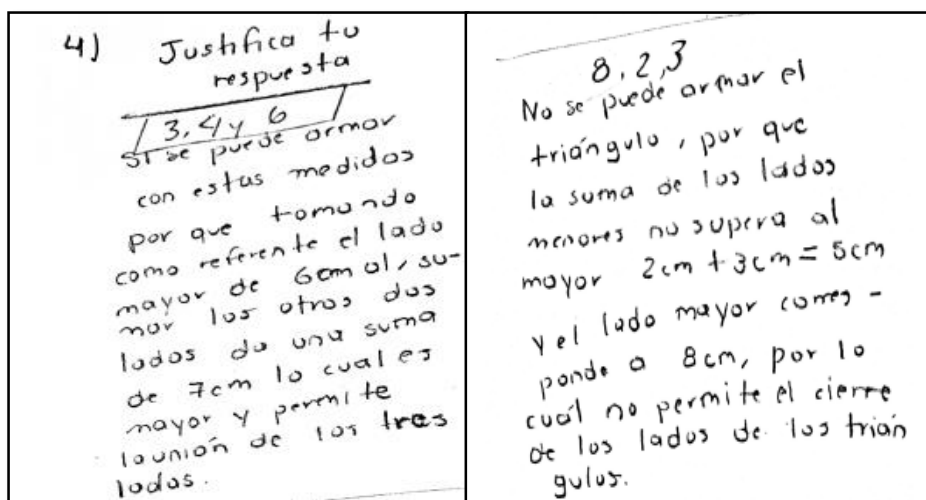 4) Justifica tu
respuesta
3, 4 y 6
Si se puede armar
con estas medidas
por que tomando
como referente el lado
mayor de 6cm al, su-
mar los otros dos
lados da una suma
de 7cm lo cual es
mayor y permite
la unión de los tres
lados.
8, 2, 3
No se puede armar el
triángulo, por que
la suma de los lados
menores no supera al
mayor 2cm + 3cm = 5cm
y el lado mayor corres-
ponde a 8cm, por lo
cuál no permite el cierre
de los lados de los trián
gulos.